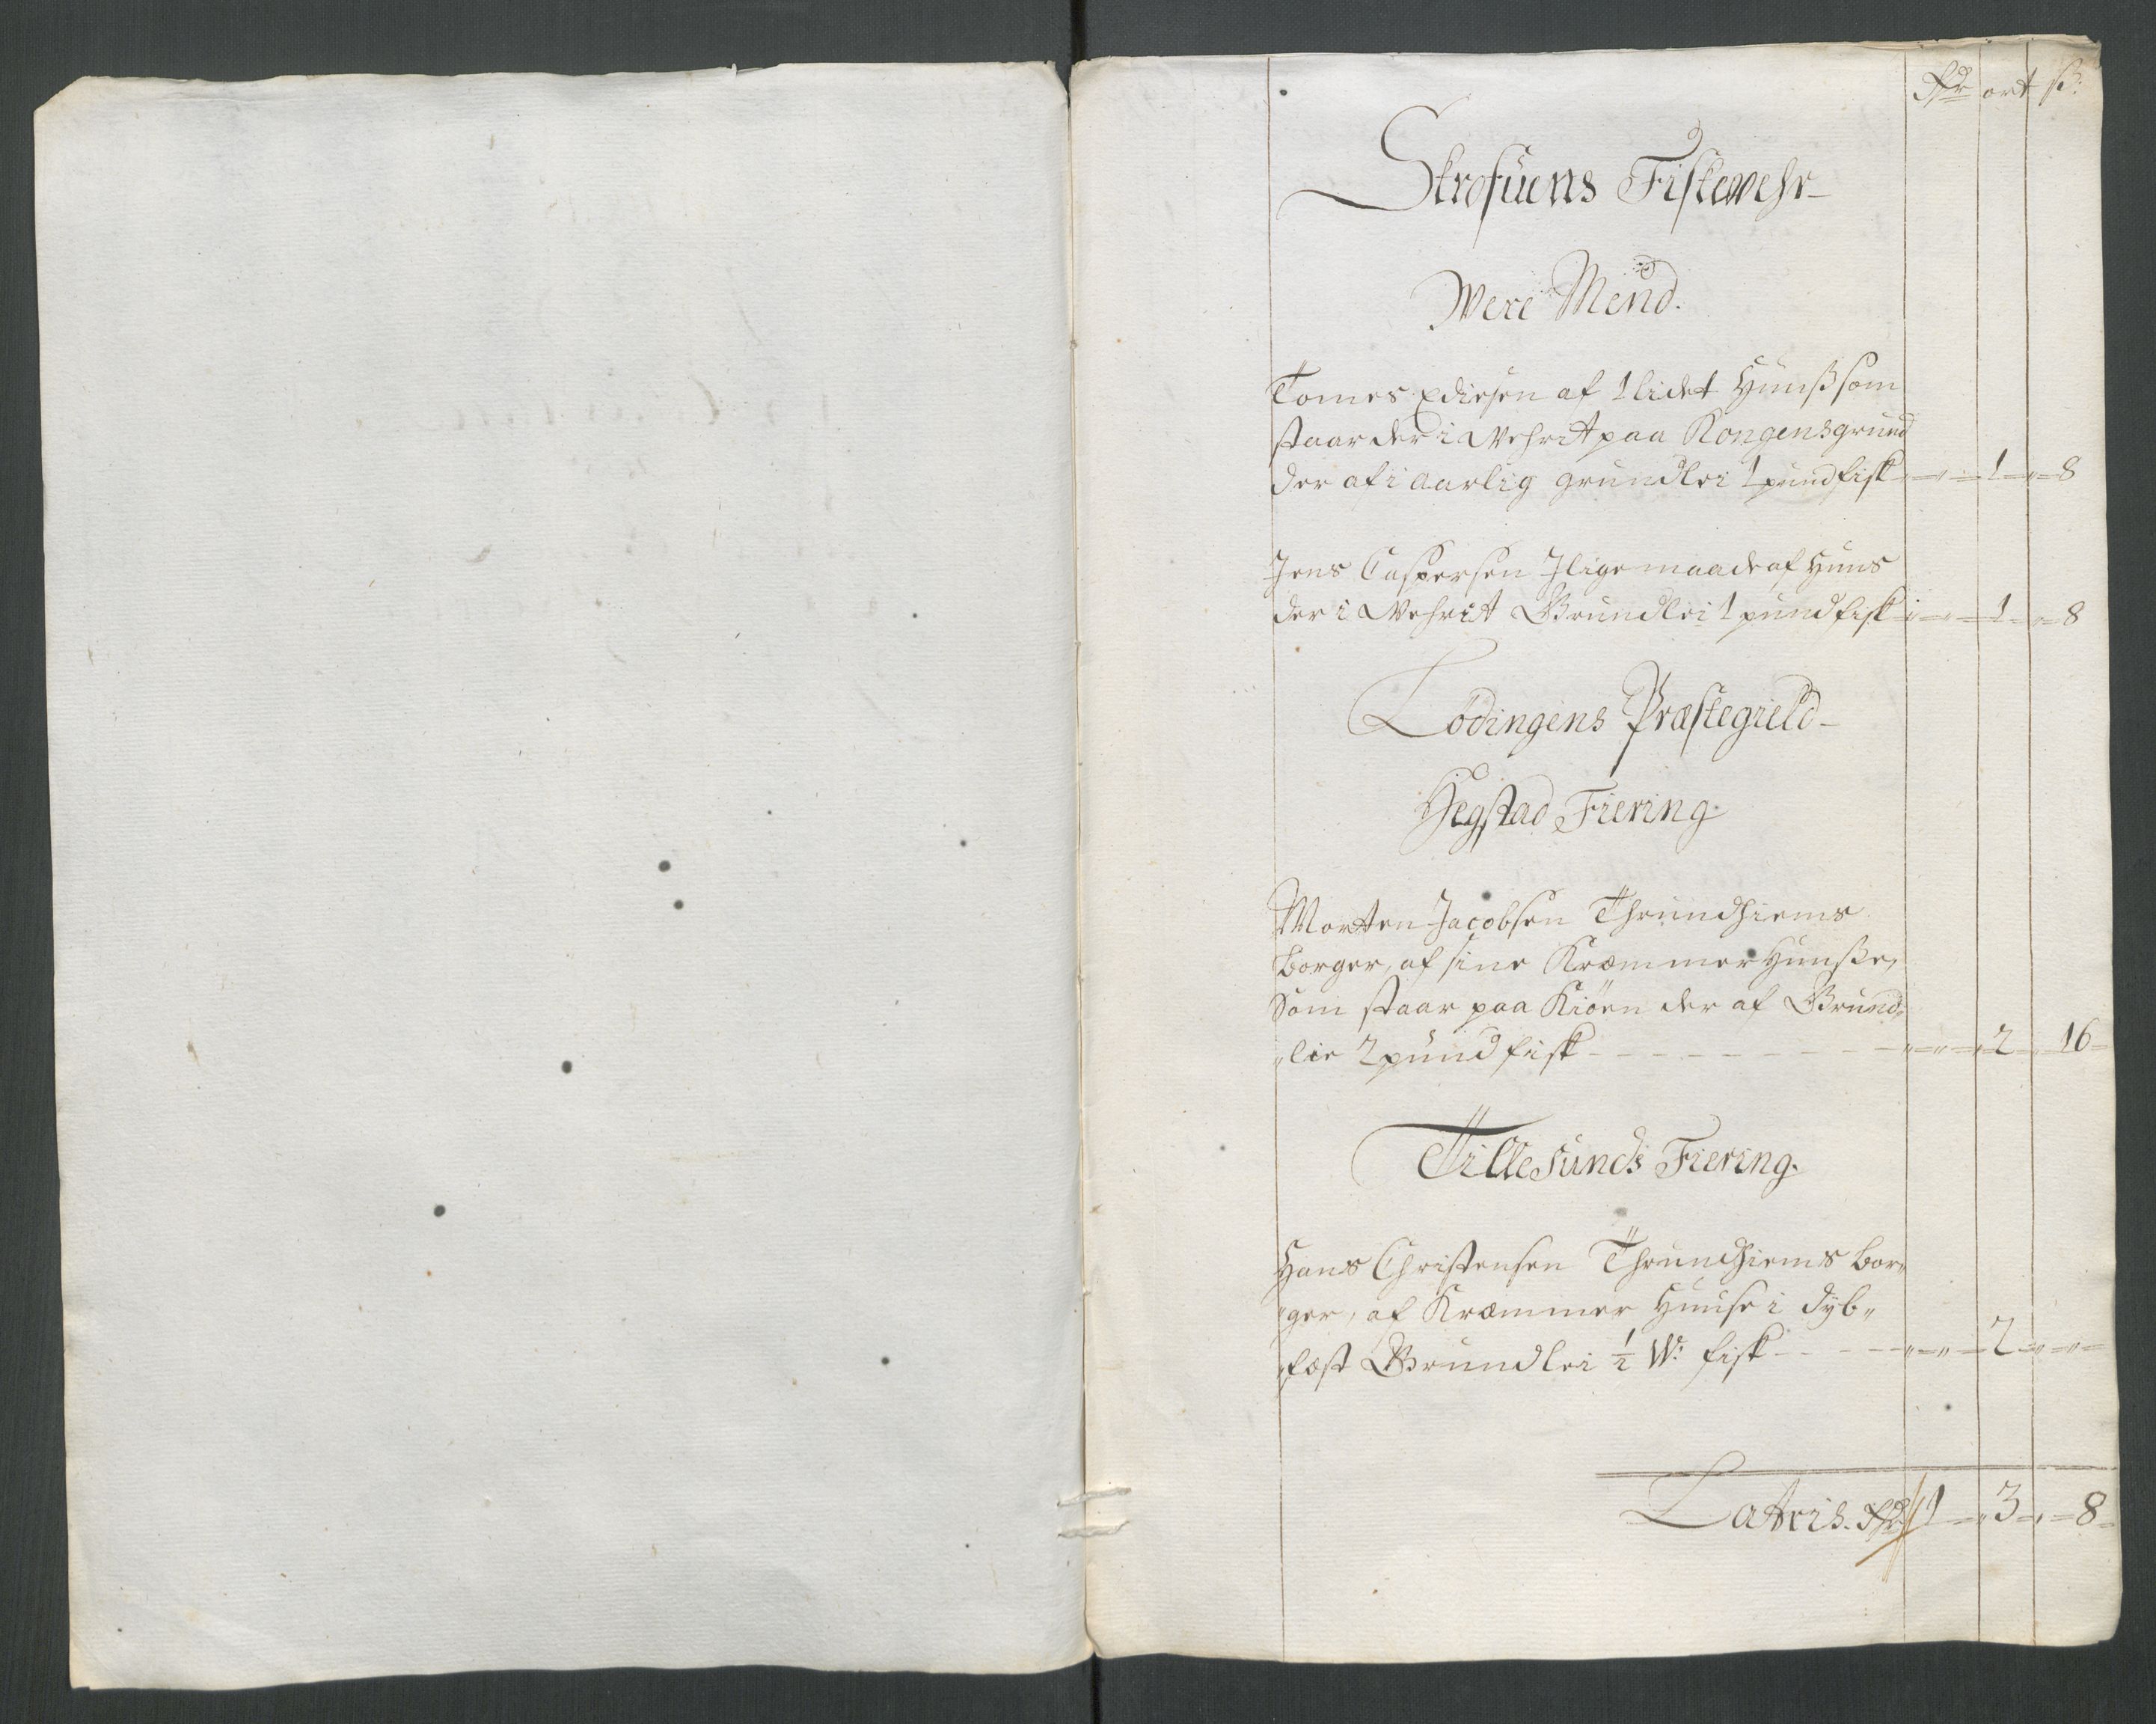 Rdr ort ß:
Skrofuens Fiskewehr
Were Mend.
Tomes Ediesen af 1 lidet Huuß som
staar der i Wehret paa Kongens grund
der af i aarlig grundlei 1 pund fisk - " - 1 - " - 8
Jens Caspersen J lige maade af Huus
der i Wehret Grundlei 1 pund fisk - " - 1 - " - 8
Lødingens Præstegield
Hegstad Fiering
Morten Jacobsen Thrundhiems
borger, af sine Kræmmer Huuße,
som staar paa Kiøen der af Grund„
„leie 2 pund fisk - - - - - - - " - 2 - 16
Tillesunds Fiering.
Hans Christensen Thrundhiems bor„
„ger, af Kræmmer Huuse i dyb„
„fæst Grundlei 1/2 W: fisk - - - " - 2 - " -
Lateris. Rdr 1 - 3 - 8